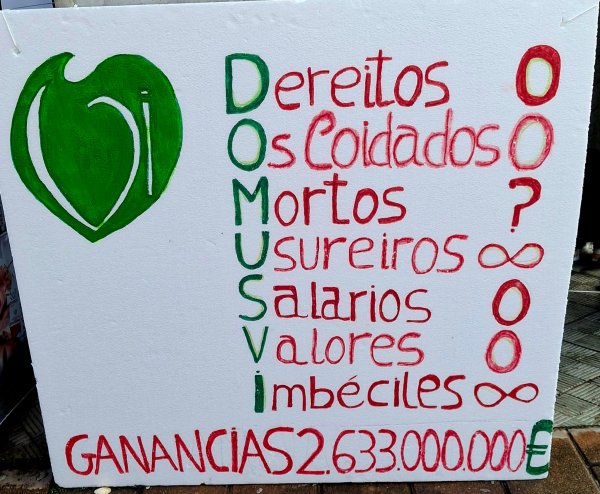 Dereitos 0
Os Coidados 0
Mortos ?
Usureiros ∞
Salarios 0
Valores 0
Imbéciles ∞
GANANCIAS 2.633.000.000€